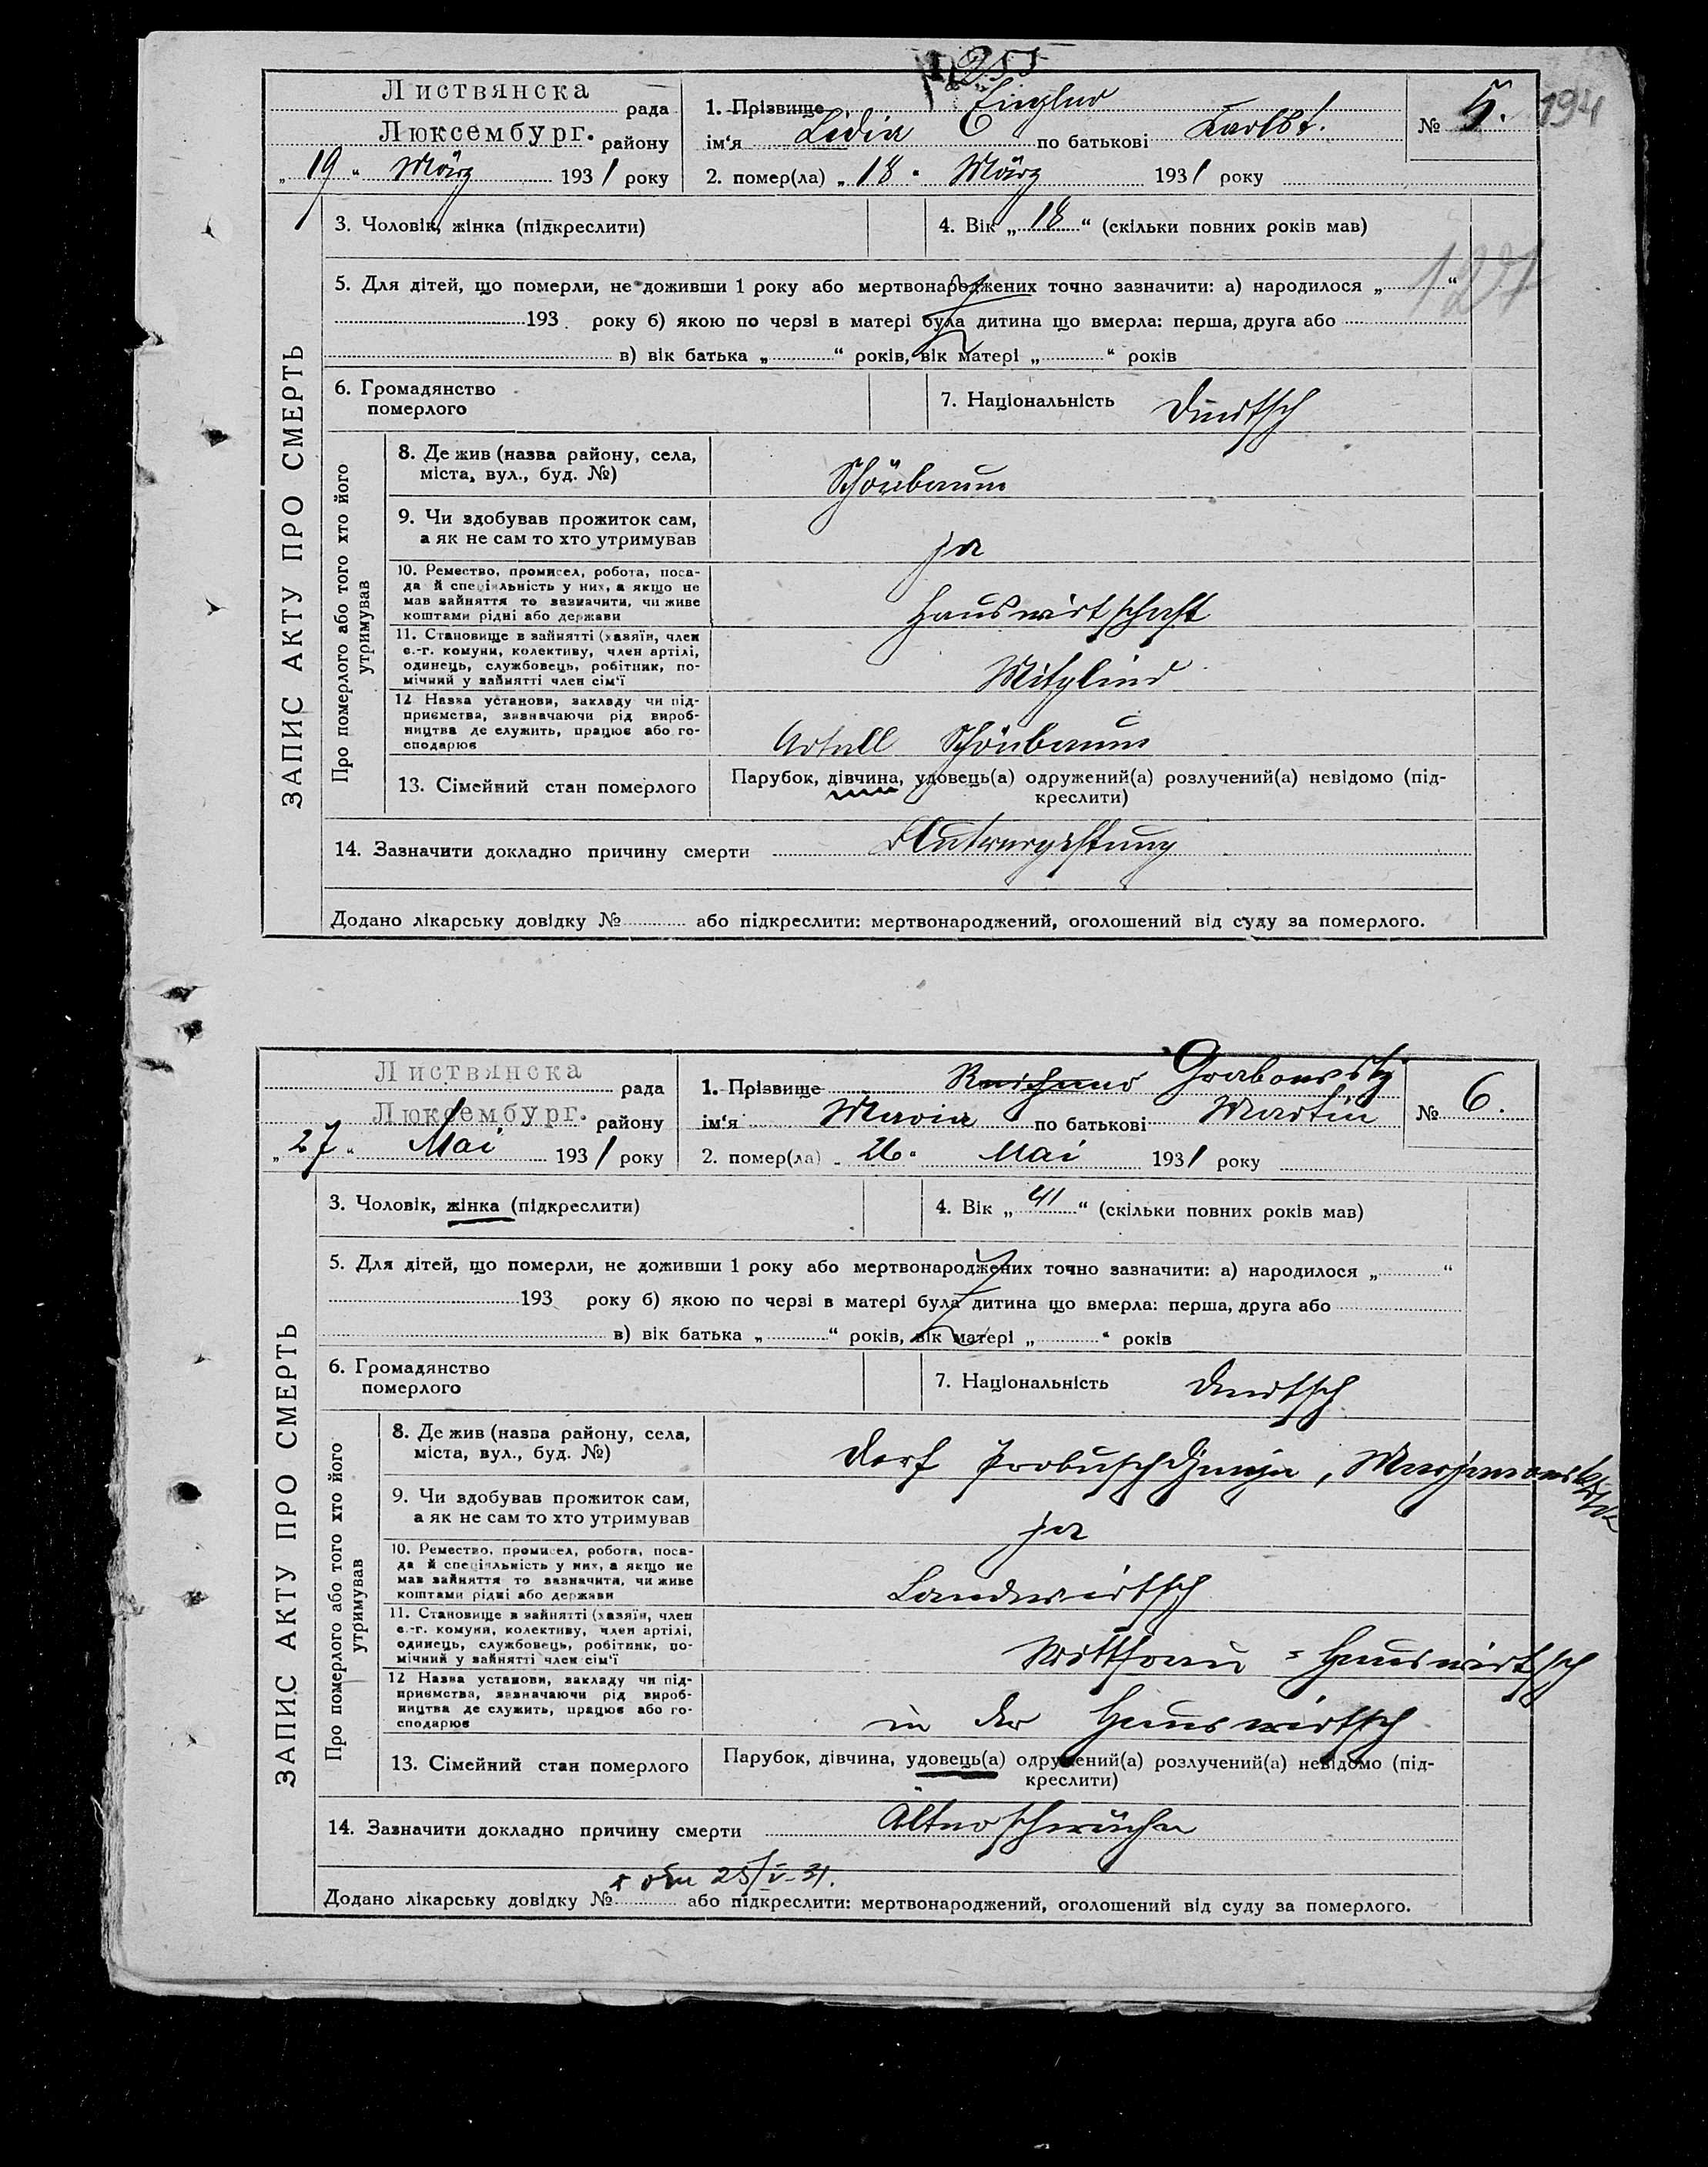 194
Листвянска рада
Люксембург. району
„19“ März 1931 року
1. Прізвище Zingler
ім‘я Lidia по батькові Karlbt.
№ 5.
2. помер(ла) „18“ März 1931 року
3. Чоловік, жінка (підкреслити)
4. Вік „18“ (скільки повних років мав)
127
5. Для дітей, що померли, не доживши 1 року або мертвонароджених точно зазначити: а) народилося „ “
193 року б) якою по черзі в матері була дитина що вмерла: перша, друга або
в) вік батька „ “ років, вік матері „ “ років
6. Громадянство
померлого
7. Національність Deutsch
ЗАПИС АКТУ ПРО СМЕРТЬ
Про померлого або того хто його
утримував
8. Де жив (назва району, села,
міста, вул., буд. №)
Schönbaum
9. Чи здобував прожиток сам,
а як не сам то хто утримував
ja
10. Ремество, промисел, робота, поса-
да й спеціяльність у них, а якщо не
мав зайняття то зазначити, чи живе
коштами рідні або держави
Hauswirtschaft
11. Становище в зайнятті (хазяїн, член
с.-г. комуни, колективу, член артілі,
одинець, службовець, робітник, по-
мічний у зайнятті член сім‘ї
Mitglied
12 Назва установи, закладу чи під-
приємства, зазначаючи рід вироб-
ництва де служить, працює або го-
сподарює
Artell Schönbaum
13. Сімейний стан померлого
Парубок, дівчина, удовець(а) одружений(а) розлучений(а) невідомо (під-
креслити)
14. Зазначити докладно причину смерти Blutvergiftung
Додано лікарську довідку № або підкреслити: мертвонароджений, оголошений від суду за померлого.
Листвянска рада
Люксембург. району
„27“ Mai 1931 року
1. Прізвище Grabowsky
ім‘я Maria по батькові Martin
№ 6.
2. помер(ла) „26“ Mai 1931 року
3. Чоловік, жінка (підкреслити)
4. Вік „41“ (скільки повних років мав)
5. Для дітей, що померли, не доживши 1 року або мертвонароджених точно зазначити: а) народилося „ “
193 року б) якою по черзі в матері була дитина що вмерла: перша, друга або
в) вік батька „ “ років, вік матері „ “ років
6. Громадянство
померлого
7. Національність Deutsch
ЗАПИС АКТУ ПРО СМЕРТЬ
Про померлого або того хто його
утримував
8. Де жив (назва району, села,
міста, вул., буд. №)
Dorf
9. Чи здобував прожиток сам,
а як не сам то хто утримував
ja
10. Ремество, промисел, робота, поса-
да й спеціяльність у них, а якщо не
мав зайняття то зазначити, чи живе
коштами рідні або держави
Landwirtsch
11. Становище в зайнятті (хазяїн, член
с.-г. комуни, колективу, член артілі,
одинець, службовець, робітник, по-
мічний у зайнятті член сім‘ї
Wittfrau = Hauswirtsch
12 Назва установи, закладу чи під-
приємства, зазначаючи рід вироб-
ництва де служить, працює або го-
сподарює
in der Hauswirtsch
13. Сімейний стан померлого
Парубок, дівчина, удовець(а) одружений(а) розлучений(а) невідомо (під-
креслити)
14. Зазначити докладно причину смерти Altersschwäche
від 25/V-31.
Додано лікарську довідку № або підкреслити: мертвонароджений, оголошений від суду за померлого.